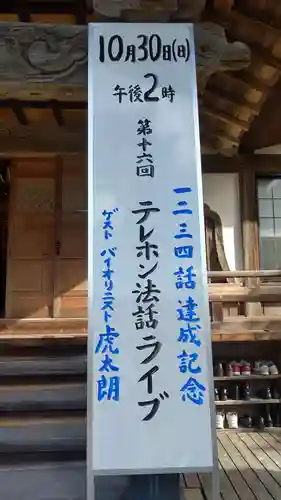 10月30日(日)
午後2時
一二三四話達成記念
第十六回 テレホン法話ライブ
ゲスト バイオリニスト 虎太朗